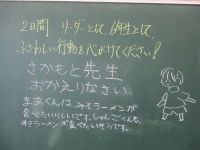 2日間 リーダーとして、6年生として、
ふさわしい行動を心がけてください!
さかもと先生
おかえりなさい
まあくんは、みそラーメンが
食べたいらしいです。しゅんごくんも、
みそラーメンが食べたいそうです。